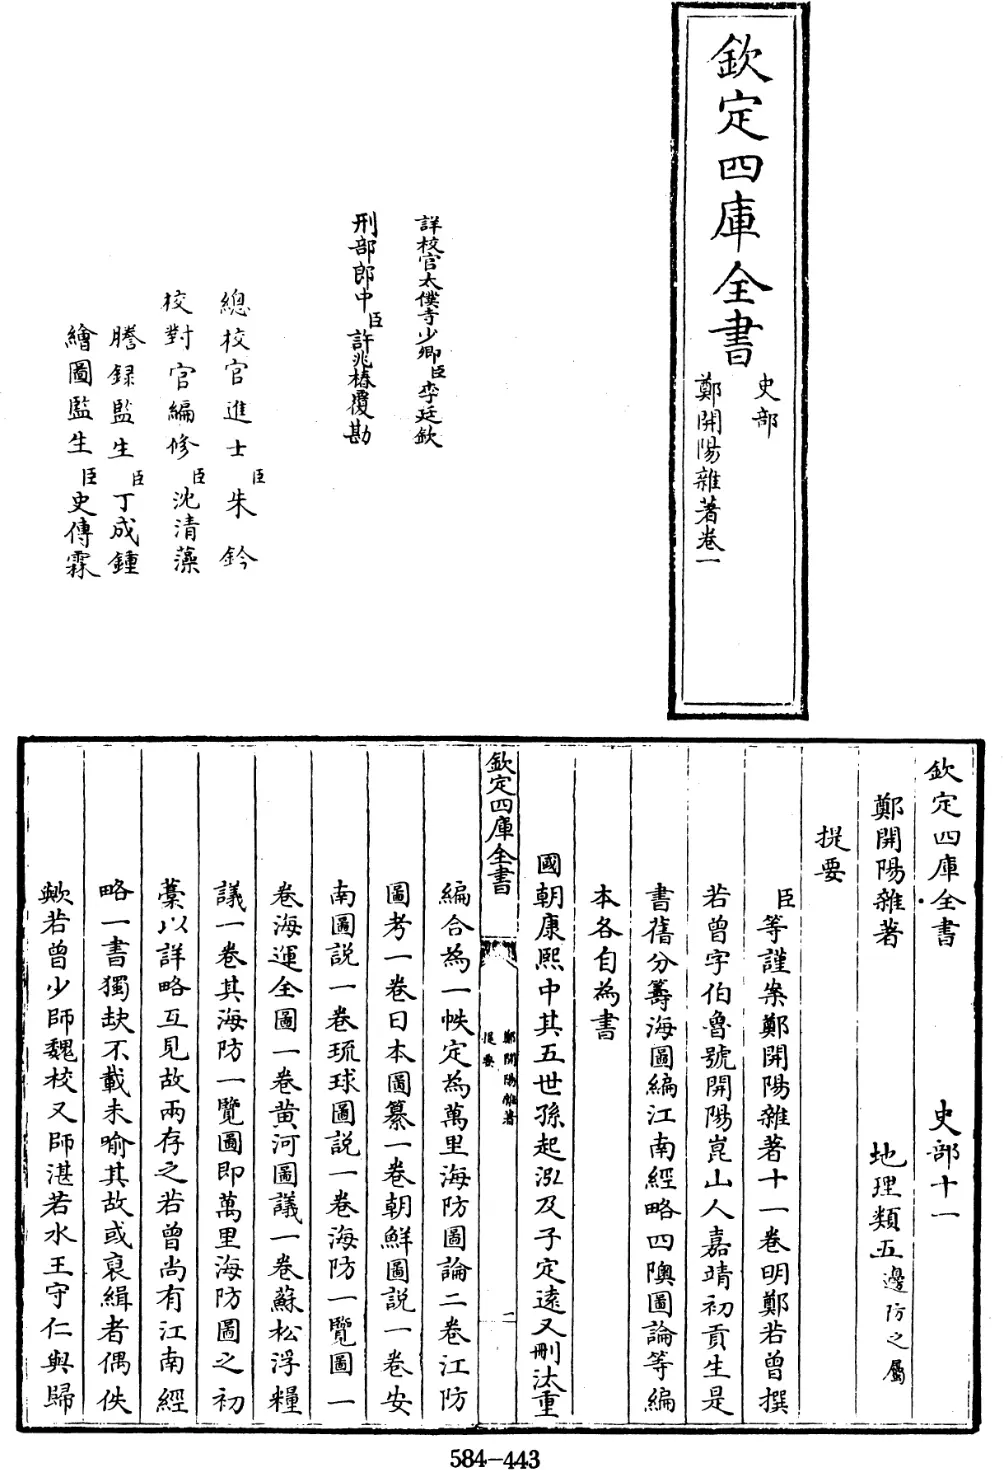 欽定四庫全書
史部
鄭開陽雜著卷一
詳校官太僕寺少卿臣李廷欽
刑部郎中臣許兆椿覆勘
總校官進士臣朱鈐
校對官編修臣沈清藻
謄録監生臣丁成鍾
繪圖監生臣史傳霖
欽定四庫全書 史部十一
鄭開陽雜著 地理類五邊防之屬
提要
臣等謹案鄭開陽雜著十一卷明鄭若曾撰
若曾字伯魯號開陽崑山人嘉靖初貢生是
書舊分籌海圖編江南經略四隩圖論等編
本各自為書
國朝康熙中其五世孫起泓及子定遠又刪汰重
欽定四庫全書
鄭開陽雜著
提要
二
編合為一帙定為萬里海防圖論二卷江防
圖考一卷日本圖纂一卷朝鮮圖説一卷安
南圖説一卷琉球圖説一卷海防一覽圖一
卷海運全圖一卷黄河圖議一卷蘇松浮糧
議一卷其海防一覽圖即萬里海防圖之初
藁以詳略互見故兩存之若曾尚有江南經
略一書獨缺不載未喻其故或裒緝者偶佚
歟若曾少師魏校又師湛若水王守仁與歸
584-443